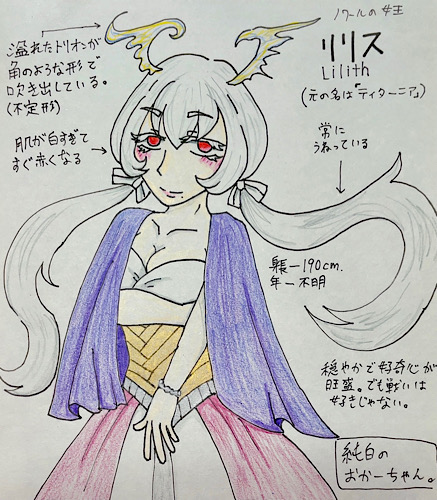 ノワールの女王
リリス
Lilith
(元の名は「ティターニア」)
溢れたトリオンが
角のような形で
吹き出している。
(不定形)
肌が白すぎて
すぐ赤くなる
常に
うねっている
身長ー190cm.
年ー不明
穏やかで好奇心が
旺盛。でも戦いは
好きじゃない。
純白の
おかーちゃん。